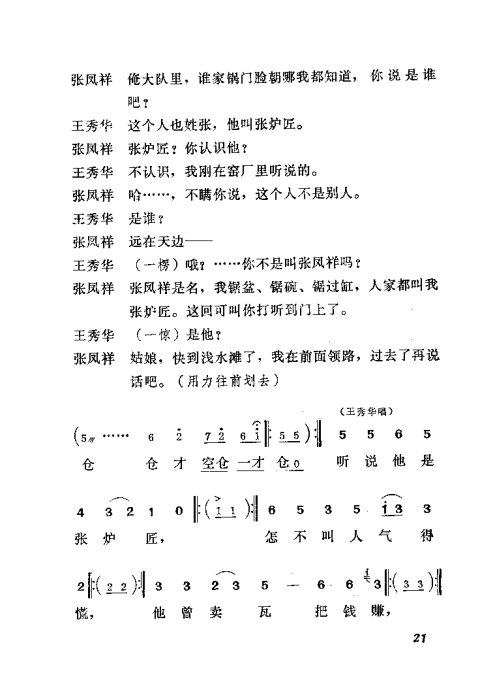 张凤祥 俺大队里，谁家锅门脸朝哪我都知道，你说是谁
吧？
王秀华 这个人也姓张，他叫张炉匠。
张凤祥 张炉匠？你认识他？
王秀华 不认识，我刚在窑厂里听说的。
张凤祥 哈……，不瞒你说，这个人不是别人。
王秀华 是谁？
张凤祥 远在天边——
王秀华 （一愣）哦？……你不是叫张凤祥吗？
张凤祥 张凤祥是名，我锯盆、锯碗、锯过缸，人家都叫我
张炉匠。这回可叫你打听到门上了。
王秀华 （一惊）是他？
张凤祥 姑娘，快到浅水滩了，我在前面领路，过去了再说
话吧。（用力往前划去）
（王秀华唱）
(5 …… 6 2 7 2 6 i ‖: 5 5 ) :‖ 5 5 6 5
仓 仓 才 空仓 一才 仓0 听 说 他 是
4 3 2 1 0 ‖: ( 1 1 ) :‖ 6 5 3 5 i 3 3
张 炉 匠， 怎 不 叫 人 气 得
2 ‖: ( 2 2 ) :‖ 3 3 2 3 5 — 6 6 3 ‖: ( 3 3 ) :‖
慌， 他 曾 卖 瓦 把 钱 赚，
21